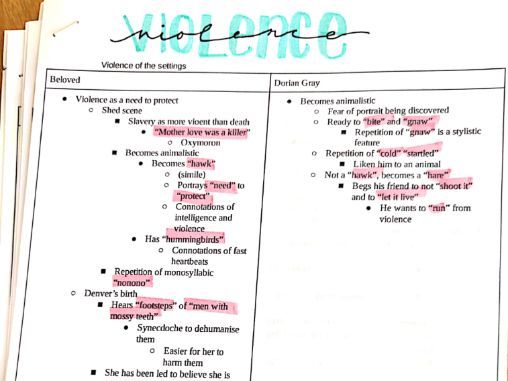 VIOLENCE
violence
Violence of the settings
Beloved
Violence as a need to protect
Shed scene
Slavery as more violent than death
"Mother love was a killer"
Oxymoron
Becomes animalistic
Becomes "hawk"
(simile)
Portrays "need" to
"protect"
Connotations of
intelligence and
violence
Has "hummingbirds"
Connotations of fast
heartbeats
Repetition of monosyllabic
"nonono"
Denver's birth
Hears "footsteps" of "men with
mossy teeth"
Synecdoche to dehumanise
them
Easier for her to
harm them
She has been led to believe she is
Dorian Gray
Becomes animalistic
Fear of portrait being discovered
Ready to "bite" and "gnaw"
Repetition of "gnaw" is a stylistic
feature
Repetition of "cold" "startled"
Liken him to an animal
Not a "hawk", becomes a "hare"
Begs his friend to not "shoot it"
and to "let it live"
He wants to "run" from
violence